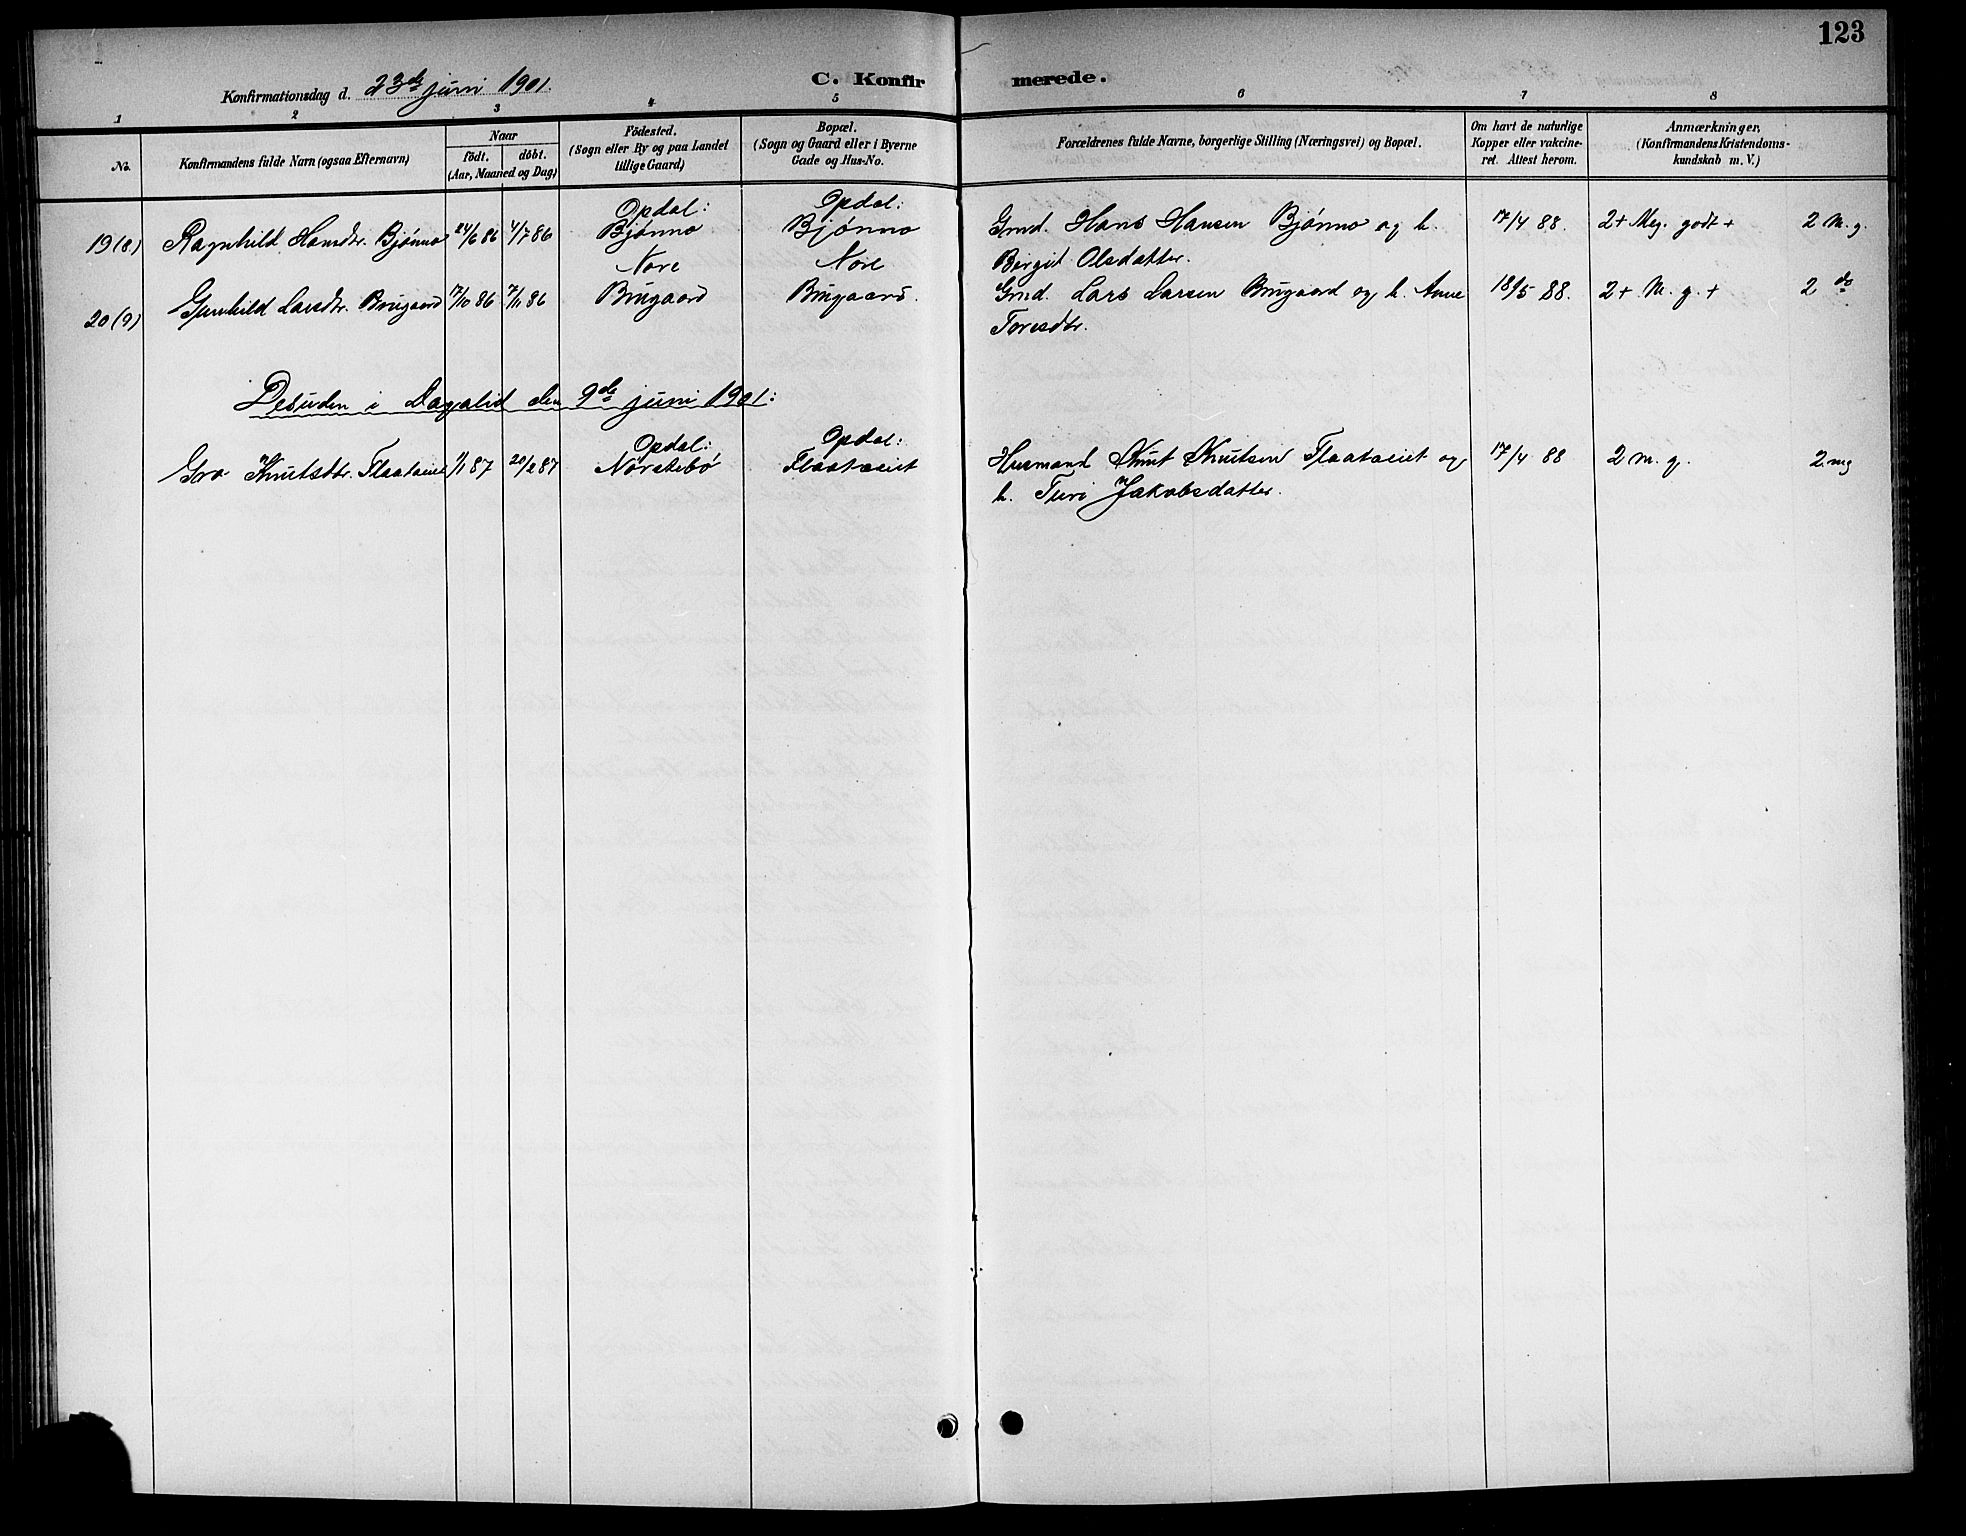 123
Konfirmationsdag d. 23de juni 1901. C. Konfirmerede.
1 2 3 4 5 6 7 8
No. Konfirmandens fulde Navn (ogsaa Efternavn) Naar födt. döbt. (Aar, Maaned og Dag) Födested. (Sogn eller By og paa Landet tillige Gaard) Bopæl. (Sogn og Gaard eller i Byerne Gade og Hus-No. Forældrenes fulde Navne, borgerlige Stilling (Næringsvei) og Bopæl. Om havt de naturlige Kopper eller vakcineret. Attest herom. Anmærkninger, (Konfirmandens Kristendomskundskab m. V.)
Opdal: Opdal:
19 (8) Ragnhild Hansdtr. Bjönno 24/6 86 4/7 86 Bjönno Bjönno Gmd. Hans Hansen Bjönno og h. 17/4 88. 2+ Meg. godt + 2 M. g.
Nore Nore Birgit Olsdatter.
20 (9) Gunhild Larsdtr. Brugaard 17/10 86 7/11 86 Brugaard Brugaard. Gmd. Lars Larsen Brugaard og h. Anne 18/5 88. 2+ M. g. + 2 do
Toresdtr.
Desuden i Dagalid den 9de juni 1901:
Opdal: Opdal:
Gro Knutsdtr. Flaataeiet 1/1 87 20/2 87 Nörstebö Flaataeiet Husmand Knut Knutsen Flaataeiet og 17/4 88 2 m. g. 2 mg
h. Turi Jakobsdatter.